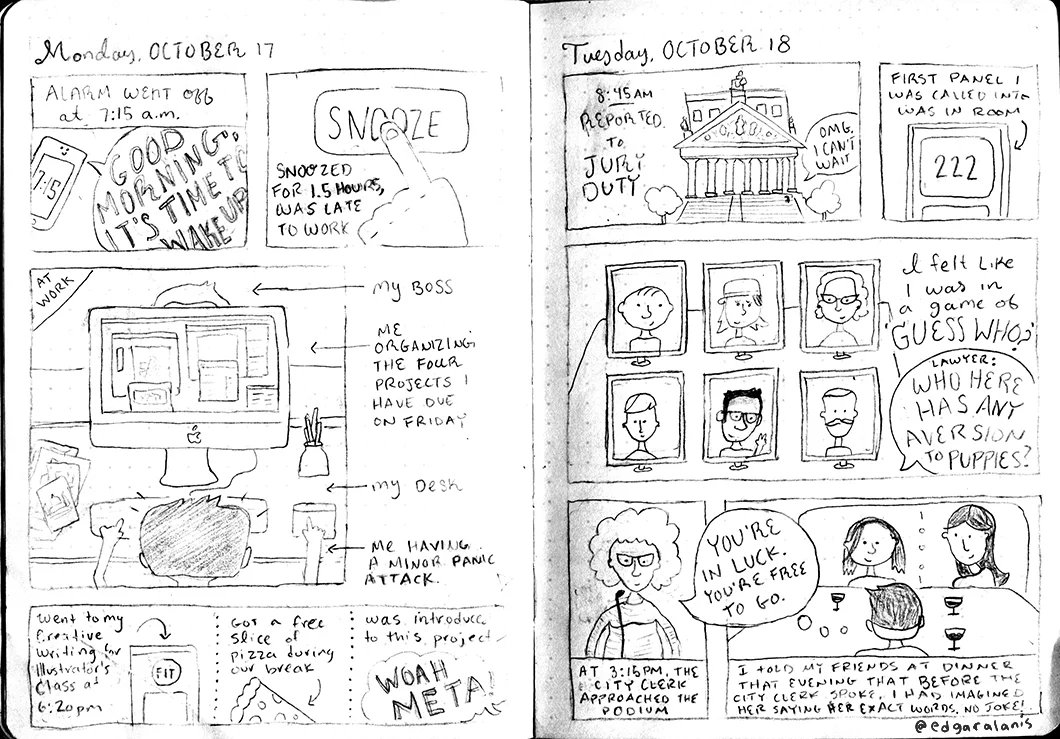 Monday, OCTOBER 17
ALARM WENT OFF
at 7:15 a.m.
7:15
GOOD
MORNING.
IT'S TIME TO
WAKE UP
SNOOZE
SNOOZED
FOR 1.5 HOURS,
WAS LATE
TO WORK
AT
WORK
MY BOSS
ME
ORGANIZING
THE FOUR
PROJECTS I
HAVE DUE
ON FRIDAY
MY DESK
ME HAVING
A MINOR PANIC
ATTACK.
Went to my
Creative
writing for
Illustrator's
Class at
6:20pm
FIT
GOT A FREE
slice of
pizza during
our break
was introduced
to this project
WOAH
META!
Tuesday, OCTOBER 18
8:45 AM
REPORTED
TO
JURY
DUTY
OMG.
I CAN'T
WAIT
FIRST PANEL I
WAS CALLED INTO
WAS IN ROOM
222
I felt like
I was in
a game of
'GUESS WHO?'
LAWYER:
WHO HERE
HAS ANY
AVERSION
TO PUPPIES?
YOU'RE
IN LUCK.
YOU'RE FREE
TO GO.
AT 3:15PM, THE
CITY CLERK
APPROACHED THE
PODIUM
I TOLD MY FRIENDS AT DINNER
THAT EVENING THAT BEFORE THE
CITY CLERK SPOKE, I HAD IMAGINED
HER SAYING HER EXACT WORDS. NO JOKE!
@edgaralanis